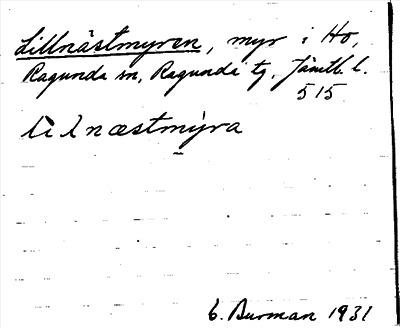 Lillnästmyren, myr i Ho,
Ragunda sn, Ragunda tg, Jämtl. l.
515
lìlnæstmyra
C. Burman 1931